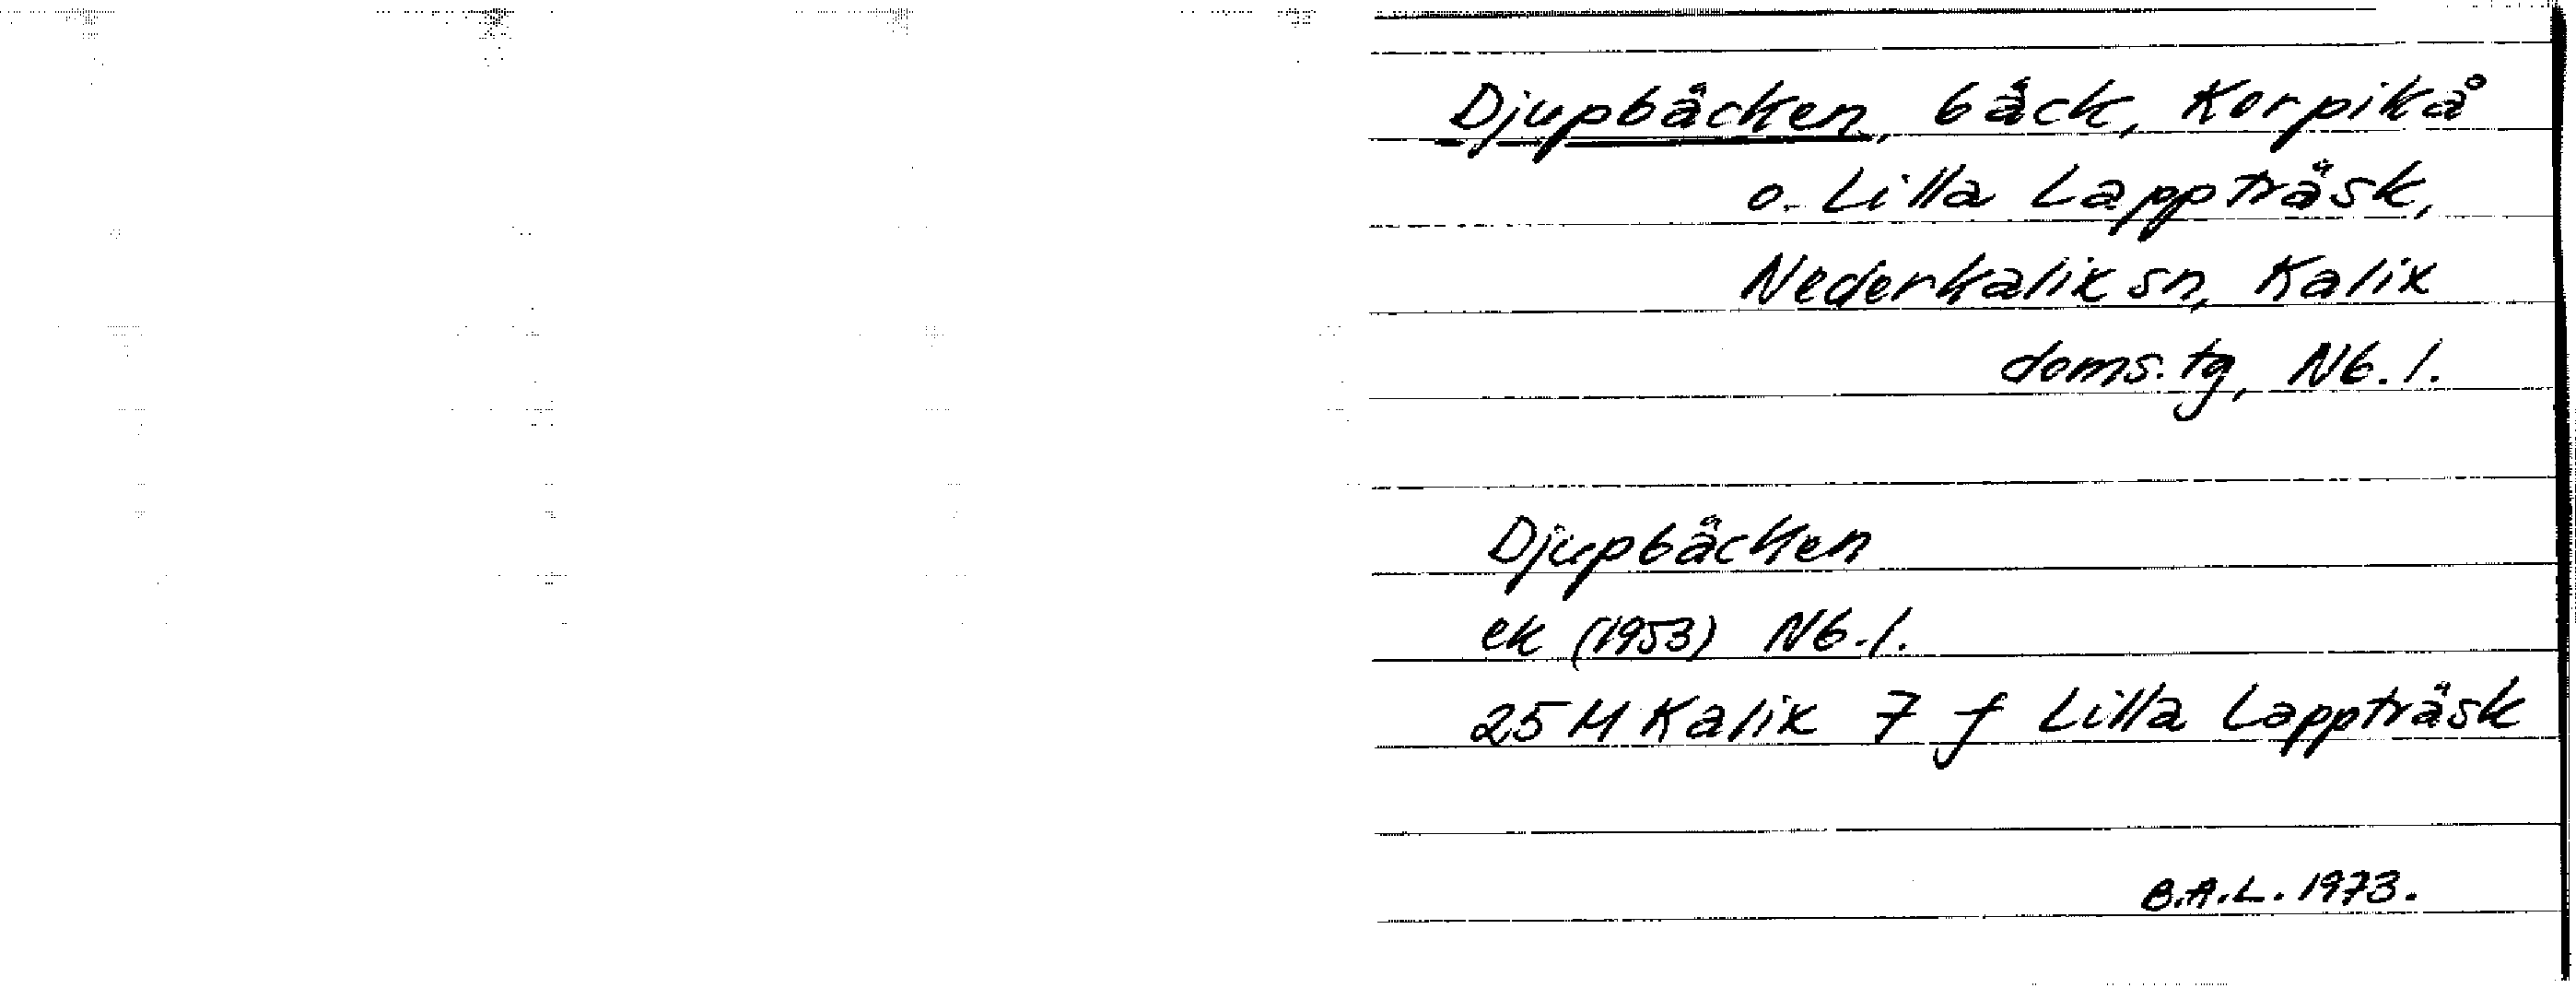 Djupbäcken, bäck, Korpikå
o. Lilla Lappträsk,
Nederkalix sn, Kalix
doms. tg, Nb. l.
Djupbäcken
ek (1953) Nb. l.
25 M Kalix 7 f Lilla Lappträsk
B.A.L. 1973.